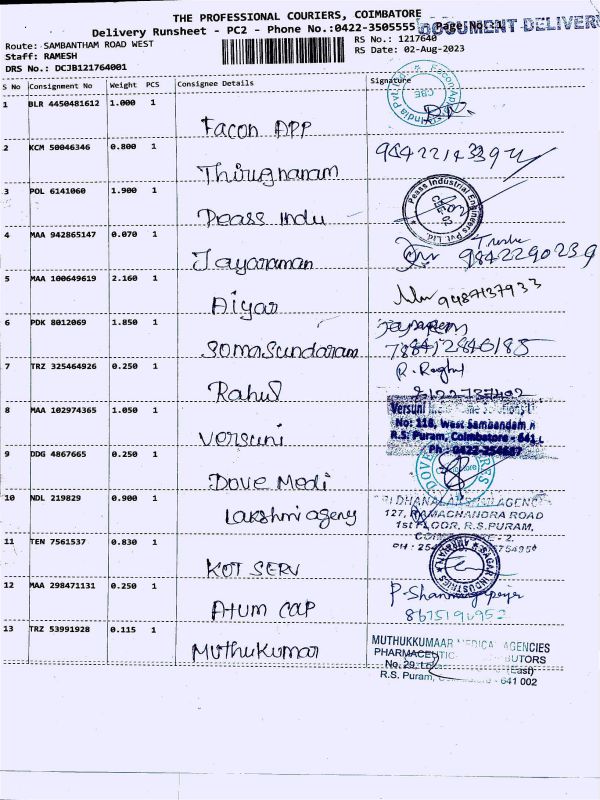 THE PROFESSIONAL COURIERS, COIMBATORE
Delivery Runsheet - PC2 - Phone No.:0422-3505555 Page No.:1
DOCUMENT DELIVERY
Route: SAMBANTHAM ROAD WEST
RS No.: 1217640
Staff: RAMESH
RS Date: 02-Aug-2023
DRS No.: DCJB121764001
S No Consignment No Weight PCS Consignee Details Signature
1 BLR 4450481612 1.000 1
Facon APP
2 KCM 50046346 0.800 1
Thirugnanam
3 POL 6141060 1.900 1
Peass Indu
Peass Industrial Engineers Pvt. Ltd.
4 MAA 942865147 0.070 1
Jayaraman
9842290239
5 MAA 100649619 2.160 1
Aiyar
9487137933
6 PDK 8012069 1.850 1
Somasundaram
7 TRZ 325464926 0.250 1
Rahul
R. Raghul
8 MAA 102974365 1.050 1
Versuni
Versuni
No: 118, West Sambandam
R.S. Puram, Coimbatore - 641
9 DDG 4867665 0.250 1
Dove Medi
DOVE
10 NDL 219829 0.900 1
Lakshmi agency
127, RAMACHANDRA ROAD
1st FLOOR, R.S.PURAM,
11 TEN 7561537 0.830 1
KOT SERV
SAGAR INDUSTRIES
12 MAA 298471131 0.250 1
Atum cap
13 TRZ 53991928 0.115 1
Muthukumar
MUTHUKKUMAAR MEDICAL AGENCIES
PHARMACEUTIC
No. 29, (East)
R.S. Puram, 641 002